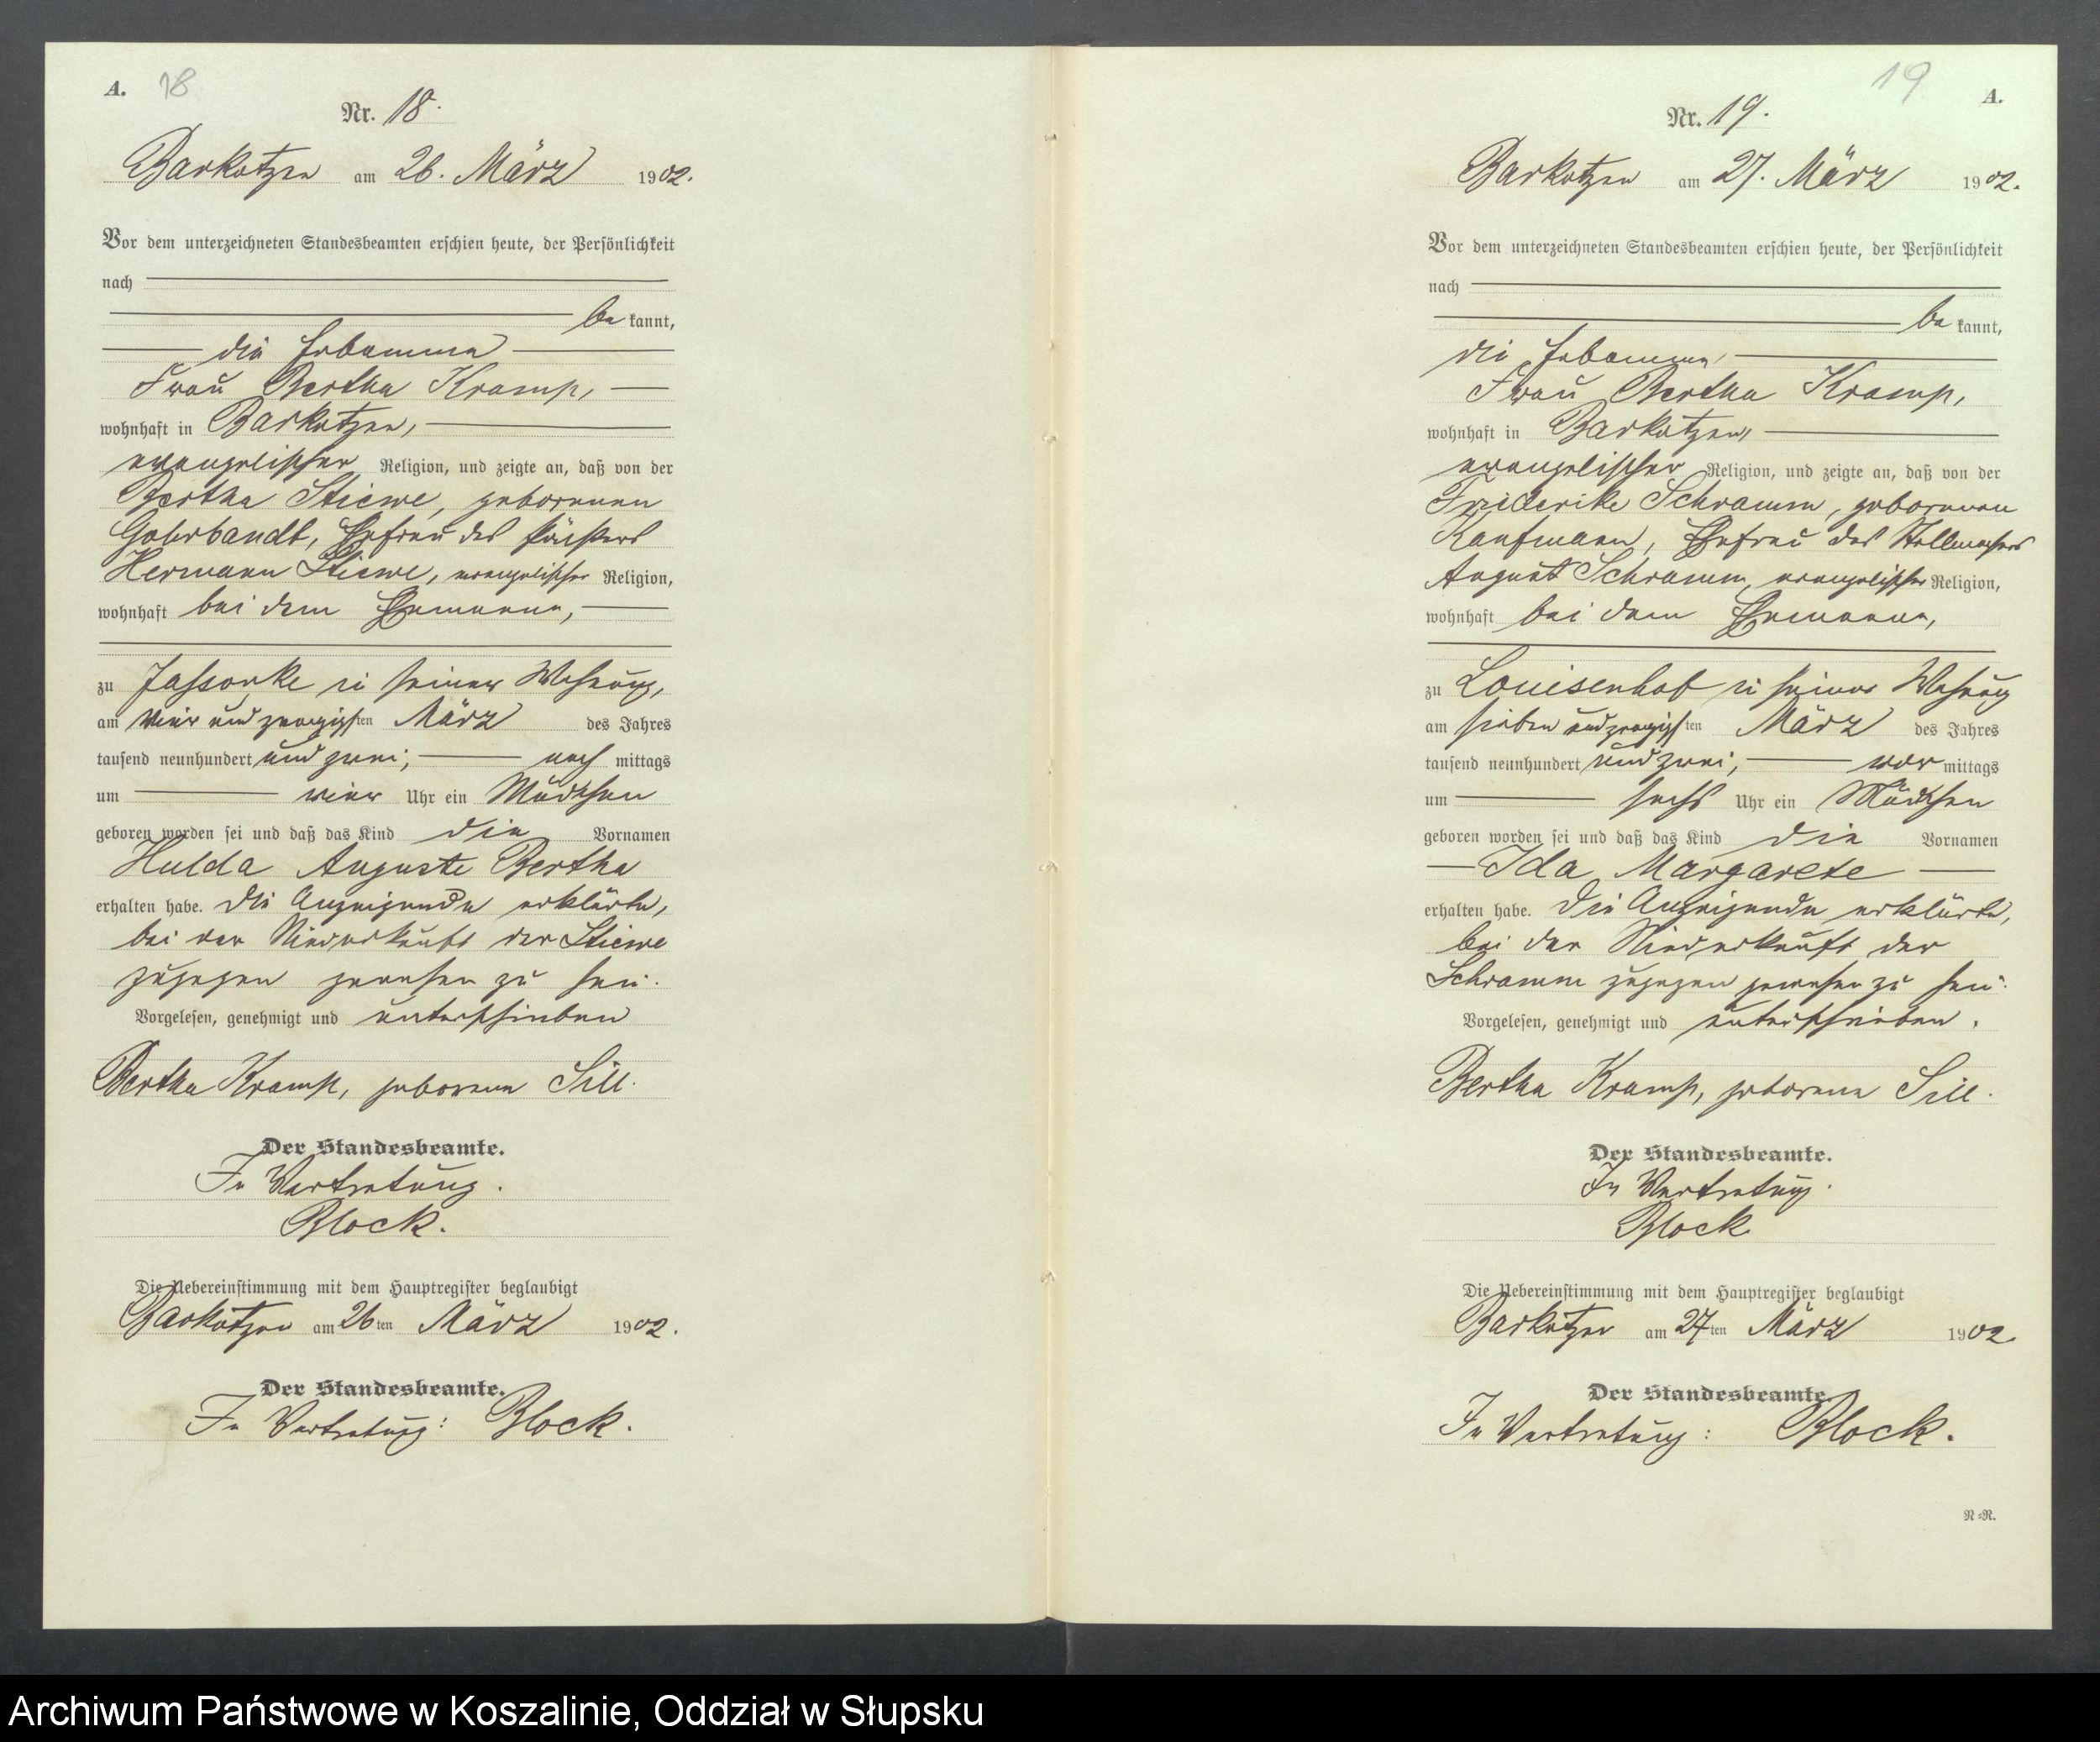 A. 18
Nr. 18.
Barkotzen am 26. März 1902.
Vor dem unterzeichneten Standesbeamten erschien heute, der Persönlichkeit
nach
be kannt,
die Hebamme
Frau Bertha Kramp,
wohnhaft in Barkotzen,
evangelischer Religion, und zeigte an, daß von der
Bertha Stiewe, geborenen
Gohrbandt, Ehefrau des
Hermann Stiewe, evangelischer Religion,
wohnhaft bei dem Ehemanne,
zu Jassonke in seiner Wohnung,
am vier und zwanzigsten März des Jahres
tausend neunhundert und zwei, nach mittags
um vier Uhr ein Mädchen
geboren worden sei und daß das Kind die Vornamen
Hulda Auguste Bertha
erhalten habe. Die Anzeigende erklärte,
bei der Niederkunft der Stiewe
zugegen gewesen zu sein.
Vorgelesen, genehmigt und unterschrieben
Bertha Kramp, geborene Sill.
Der Standesbeamte.
In Vertretung.
Block.
Die Uebereinstimmung mit dem Hauptregister beglaubigt
Barkotzen am 26ten März 1902.
Der Standesbeamte.
In Vertretung: Block.
19 A.
Nr. 19.
Barkotzen am 27. März 1902.
Vor dem unterzeichneten Standesbeamten erschien heute, der Persönlichkeit
nach
be kannt,
die Hebamme,
Frau Bertha Kramp,
wohnhaft in Barkotzen,
evangelischer Religion, und zeigte an, daß von der
Friederike Schramm, geborenen
Kaufmann, Ehefrau des Stellmachers
August Schramm, evangelischer Religion,
wohnhaft bei dem Ehemanne,
zu Louisenhof in seiner Wohnung
am sieben und zwanzigsten März des Jahres
tausend neunhundert und zwei, vor mittags
um sechs Uhr ein Mädchen
geboren worden sei und daß das Kind die Vornamen
Ida Margarete
erhalten habe. Die Anzeigende erklärte,
bei der Niederkunft der
Schramm zugegen gewesen zu sein.
Vorgelesen, genehmigt und unterschrieben.
Bertha Kramp, geborene Sill.
Der Standesbeamte.
In Vertretung.
Block
Die Uebereinstimmung mit dem Hauptregister beglaubigt
Barkotzen am 27ten März 1902
Der Standesbeamte.
In Vertretung: Block.
N=R.
Archiwum Państwowe w Koszalinie, Oddział w Słupsku